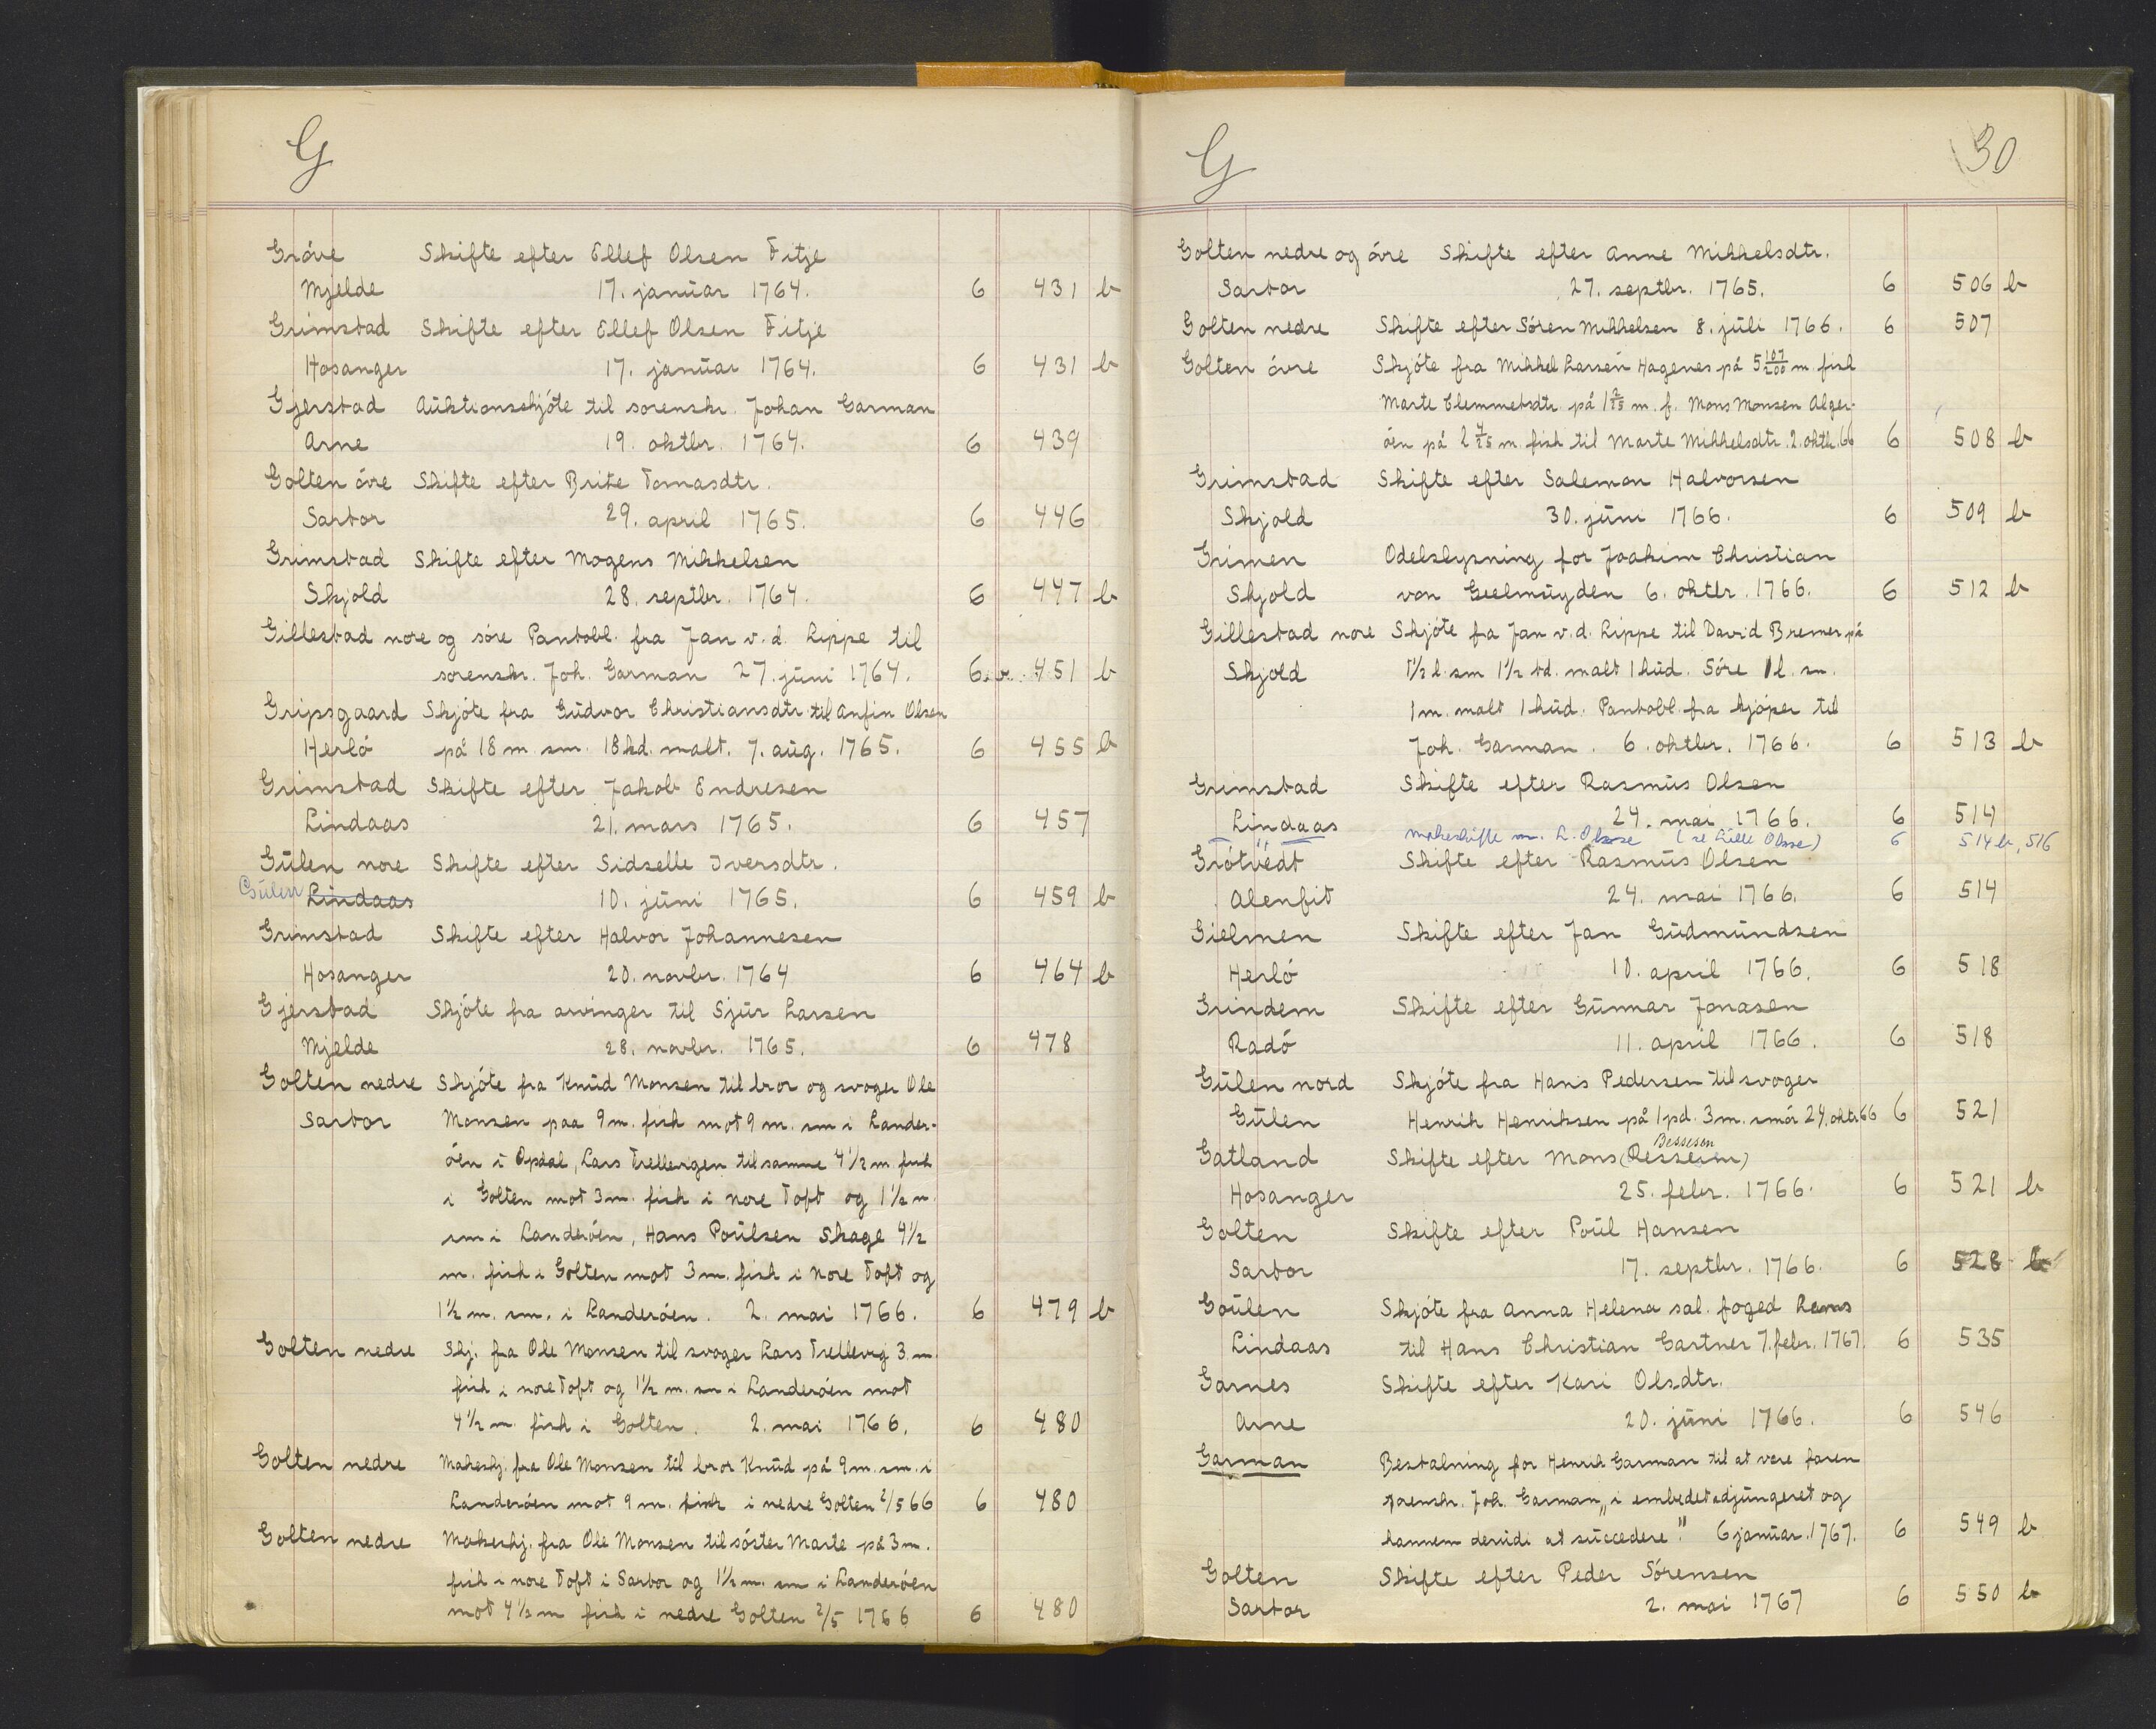 G
Gróve Skifte efter Ellef Olsen Fitje
Mjelde 17. januar 1764. 6 431 b
Grimstad Skifte efter Ellef Olsen Fitje
Hosanger 17. januar 1764. 6 431 b
Gjerstad Auktionsskjóte til sorenskr. Johan Garman
Arne 19. oktbr. 1764. 6 439
Golten óvre Skifte efter Brite Tomasdtr.
Sartor 29. april 1765. 6 446
Grimstad Skifte efter Mogens Mikkelsen
Skjold 28. septbr. 1764. 6 447 b
Gillestad nore og sóre Pantobl. fra Jan v. d. Lippe til
sorenskr. Joh. Garman 27. juni 1764. 6 451 b
Gripsgaard Skjóte fra Gudvor Christiansdtr. til Anfin Olsen
Herló på 18 m. sm. 18 kd. malt. 7. aug. 1765. 6 455 b
Grimstad Skifte efter Jakob Endresen
Lindaas 21. mars 1765. 6 457
Gulen nore Skifte efter Sidselle Iversdtr.
Gulen Lindaas 10. juni 1765. 6 459 b
Grimstad Skifte efter Halvor Johannesen
Hosanger 20. novbr. 1764 6 464 b
Gjerstad Skjóte fra arvinger til Sjur Larsen
Mjelde 28. novbr. 1765. 6 478
Golten nedre Skjóte fra Knud Monsen til bror og svoger Ole
Sartor Monsen paa 9 m. fisk mot 9 m. sm i Lander-
óen i Opdal, Lars Trellevigen til samme 4 1/2 m. fisk
i Golten mot 3 m. fisk i nore Toft og 1 1/2 m.
sm i Landeróen, Hans Poulsen Skage 4 1/2
m. fisk i Golten mot 3 m. fisk i nore Toft og
1 1/2 m. sm. i Landeróen. 2. mai 1766. 6 479 b
Golten nedre Skj. fra Ole Monsen til svoger Lars Trellevig 3 m.
fisk i nore Toft og 1 1/2 m. sm i Landeróen mot
4 1/2 m fisk i Golten. 2. mai 1766. 6 480
Golten nedre Makeskj. fra Ole Monsen til bror Knud på 9 m. sm. i
Landeróen mot 9 m. fisk i nedre Golten 2/5 66 6 480
Golten nedre Makeskj. fra Ole Monsen til sóster Marte på 3 m.
fisk i nore Toft i Sartor og 1 1/2 m. sm i Landeróen
mot 4 1/2 m fisk i nedre Golten 2/5 1766 6 480
G 30
Golten nedre og óvre Skifte efter Anne Mikkelsdtr.
Sartor 27. septbr. 1765. 6 506 b
Golten nedre Skifte efter Sóren Mikkelsen 8. juli 1766. 6 507
Golten óvre Skjóte fra Mikkel Larsen Hagenes på 5 107/200 m. fisk
Marte Clemmetsdtr. på 1 2/25 m. f. Mons Monsen Alger-
óen på 2 4/25 m. fisk til Marte Mikkelsdtr. 2. oktbr. 66 6 508 b
Grimstad Skifte efter Salemon Halvorsen
Skjold 30. juni 1766. 6 509 b
Grimen Odelslysning for Joakim Christian
Skjold von Geelmuyden 6. oktbr. 1766. 6 512 b
Gillestad nore Skjóte fra Jan v. d. Lippe til David Bremer på
Skjold 1 1/2 l. sm 1 1/2 td. malt 1 hud. Sóre 1 l. sm.
1 m. malt 1 hud. Pantobl. fra kjóper til
Joh. Garman. 6. oktbr. 1766. 6 513 b
Grimstad Skifte efter Rasmus Olsen
Lindaas 24. mai 1766. 6 514
makeskifte m. L. Okse (se Lille Okse) 6 514 b, 516
Grótvedt Skifte efter Rasmus Olsen
Alenfit 24. mai 1766. 6 514
Gielmen Skifte efter Jan Gudmundsen
Herló 10. april 1766. 6 518
Grindem Skifte efter Gunnar Jonasen
Radó 11. april 1766. 6 518
Gulen nord Skjóte fra Hans Pedersen til svoger
Gulen Henrik Henriksen på 1 pd. 3 m. smór 24. oktr 66 6 521
Bessesen
Gatland Skifte efter Mons (Ressesen)
Hosanger 25. febr. 1766. 6 521 b
Golten Skifte efter Poul Hansen
Sartor 17. septbr. 1766. 6 528 b
Goulen Skjóte fra Anna Helena sal. foged Lems
Lindaas til Hans Christian Gartner 7. febr. 1767. 6 535
Garnes Skifte efter Kari Olsdtr.
Arne 20. juni 1766. 6 546
Garman Bestalning for Henrik Garman til at vere faren
sorenskr. Joh. Garman „i embedet adjungeret og
hannem derudi at succedere". 6 januar. 1767. 6 549 b
Golten Skifte efter Peder Sórensen
Sartor 2. mai 1767 6 550 b